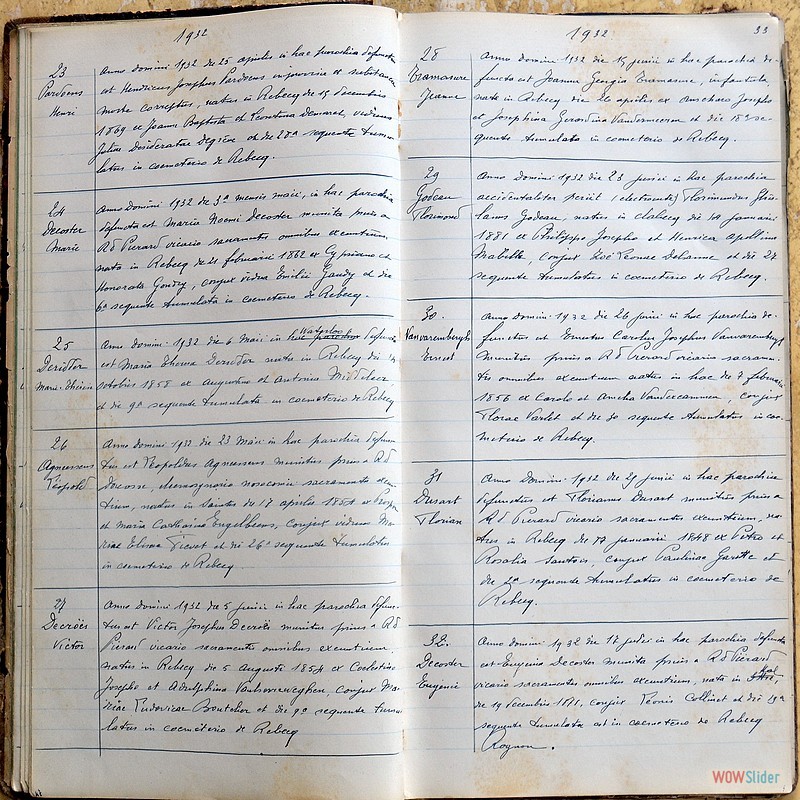 1932
23
Pardoens
Henri
Anno Domini 1932 die 25 aprilis in hac parochia defunctus
est Henricus Josephus Pardoens
morte correptus, natus in Rebecq die 15 Decembris
1869 ex Joanne Baptista et
Julia Desiderata et die 28a sequente tumu-
latus in coemeterio de Rebecq.
24
Decoster
Marie
Anno Domini 1932 die 3a mensis maii, in hac parochia
defuncta est Maria Noemi Decoster munita prius a
Rd Pierard vicario sacramentis omnibus exeuntium,
nata in Rebecq die 11 februarii 1862 ex Cypriano et
Honorata Goudry, conjux vidua Emilii Gaudy et die
6a sequente tumulata in coemeterio de Rebecq.
25
Deridor
Marie-Thérèse
Anno domini 1932 die 6 Maii in Waterloo defuncta
est Maria Theresa Deridor nata in Rebecq die
octobris 1858 ex Augustino et Antonia
et die 9a sequente tumulata in coemeterio de Rebecq
26
Agneessens
Léopold
Anno domini 1932 die 23 Maii in hac parochia defunc-
tus est Leopoldus Agneessens munitus prius a Rd
sacramentis exeun-
tium, natus in Saintes die 17 aprilis 1854 ex
et Maria Catharina Engelbeens, conjux viduus Ma-
riae et die 26a sequente tumulatus
in coemeterio de Rebecq.
27
Decroës
Victor
Anno domini 1932 die 5 junii in hac parochia defunc-
tus est Victor Josephus Decroës munitus prius a Rd
Pierard vicario sacramentis omnibus exeuntium,
natus in Rebecq die 5 Augusti 1854 ex Coelestino
Josepho et Adelphina Vanhoeweghen, conjux Ma-
riae Ludovicae et die 9a sequente tumu-
latus in coemeterio de Rebecq
1932
33
28
Tramasure
Jeanne
Anno domini 1932 die 15 junii in hac parochia de-
functa est Joanna Georgia Tramasure, infantula,
nata in Rebecq die 26 aprilis ex Anschario Josepho
et Josephina Gerardina Vandermeeren et die 18a se-
quente tumulata in coemeterio de Rebecq.
29
Godeau
Florimond
Anno Domini 1932 die 23 junii in hac parochia
accidentaliter periit (electrocuté) Florimundus Ghis-
lanus Godeau, natus in Clabecq die 14 januarii
1881 ex Philippo Josepho et Henrica Apollina
Mabille, conjux Zoé Leonae Dehanne et die 27
sequente tumulatus in coemeterio de Rebecq.
30
Vanvarembergh
Ernest
Anno domini 1932 die 26 junii in hac parochia de-
functus est Ernestus Carolus Josephus Vanvarembergh
munitus prius a Rd Pierard vicario sacramen-
tis omnibus exeuntium natus in hac die 7 februarii
1856 ex Carolo et Amelia Vandecammen, conjux
Florae Varlet et die 30 sequente tumulatus in coe-
meterio de Rebecq.
31
Dusart
Florian
Anno Domini 1932 die 29 junii in hac parochia
defunctus est Florianus Dusart munitus prius a
Rd Pierard vicario sacramentis exeuntium, na-
tus in Rebecq die 17 januarii 1848 ex Petro et
Rosalia Santois, conjux Paulinae et
die 2a sequente tumulatus in coemeterio de
Rebecq.
32.
Decoster
Eugénie
Anno domini 1932 die 17 julii in hac parochia defuncta
est Eugenia Decoster munita prius a Rd Pierard
vicario sacramentis omnibus exeuntium, nata in Hal,
die 19 Decembris 1871, conjux Leonis Collinet et die 19a
sequente tumulata est in coemeterio de Rebecq
Rognon.
WOWSlider